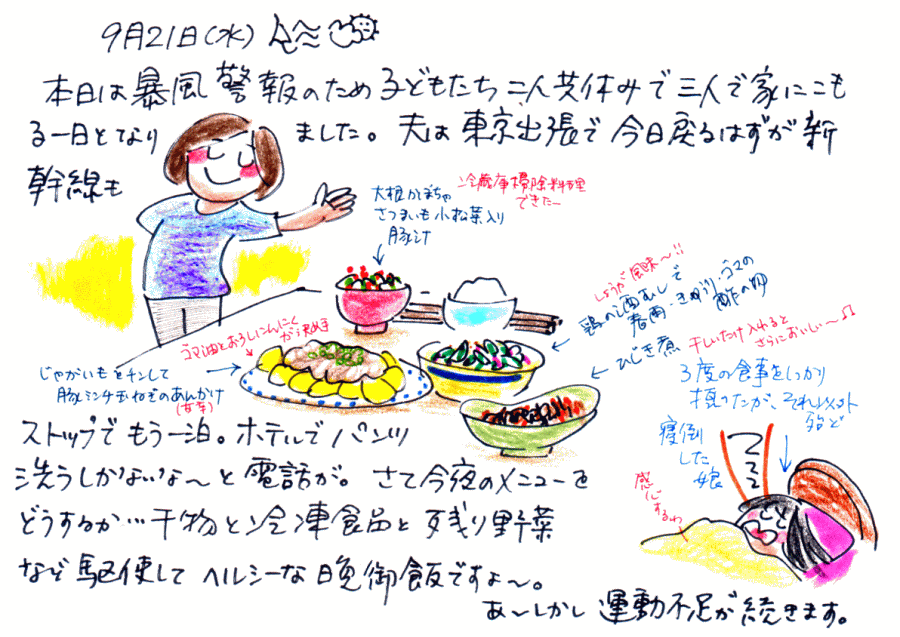 9月21日(水)
本日は暴風警報のため子どもたち二人共休みで三人で家にこも
る一日となり ました。夫は東京出張で今日戻るはずが新
幹線も
冷蔵庫掃除料理
できたー
大根かぼちゃ
さつまいも小松菜入り
豚汁
しょうが風味〜!!
鶏の酒むしで
春雨・きゅうり・ゴマの
酢の物
ひじき煮
干しいたけ入れると
さらにおいしい〜♫
ゴマ油とおろしにんにく
が決め手
じゃがいもをチンして
豚ミンチ玉ねぎのあんかけ
(甘辛)
3度の食事をしっかり
摂ったが、それ以外
殆ど
寝倒
した
娘
ZZZ
感心するわ
ストップでもう一泊。ホテルでパンツ
洗うしかないな〜と電話が。さて今夜のメニューを
どうするか…干物と冷凍食品と残り野菜
など駆使してヘルシーな晩御飯ですよ〜。
あ〜しかし運動不足が続きます。